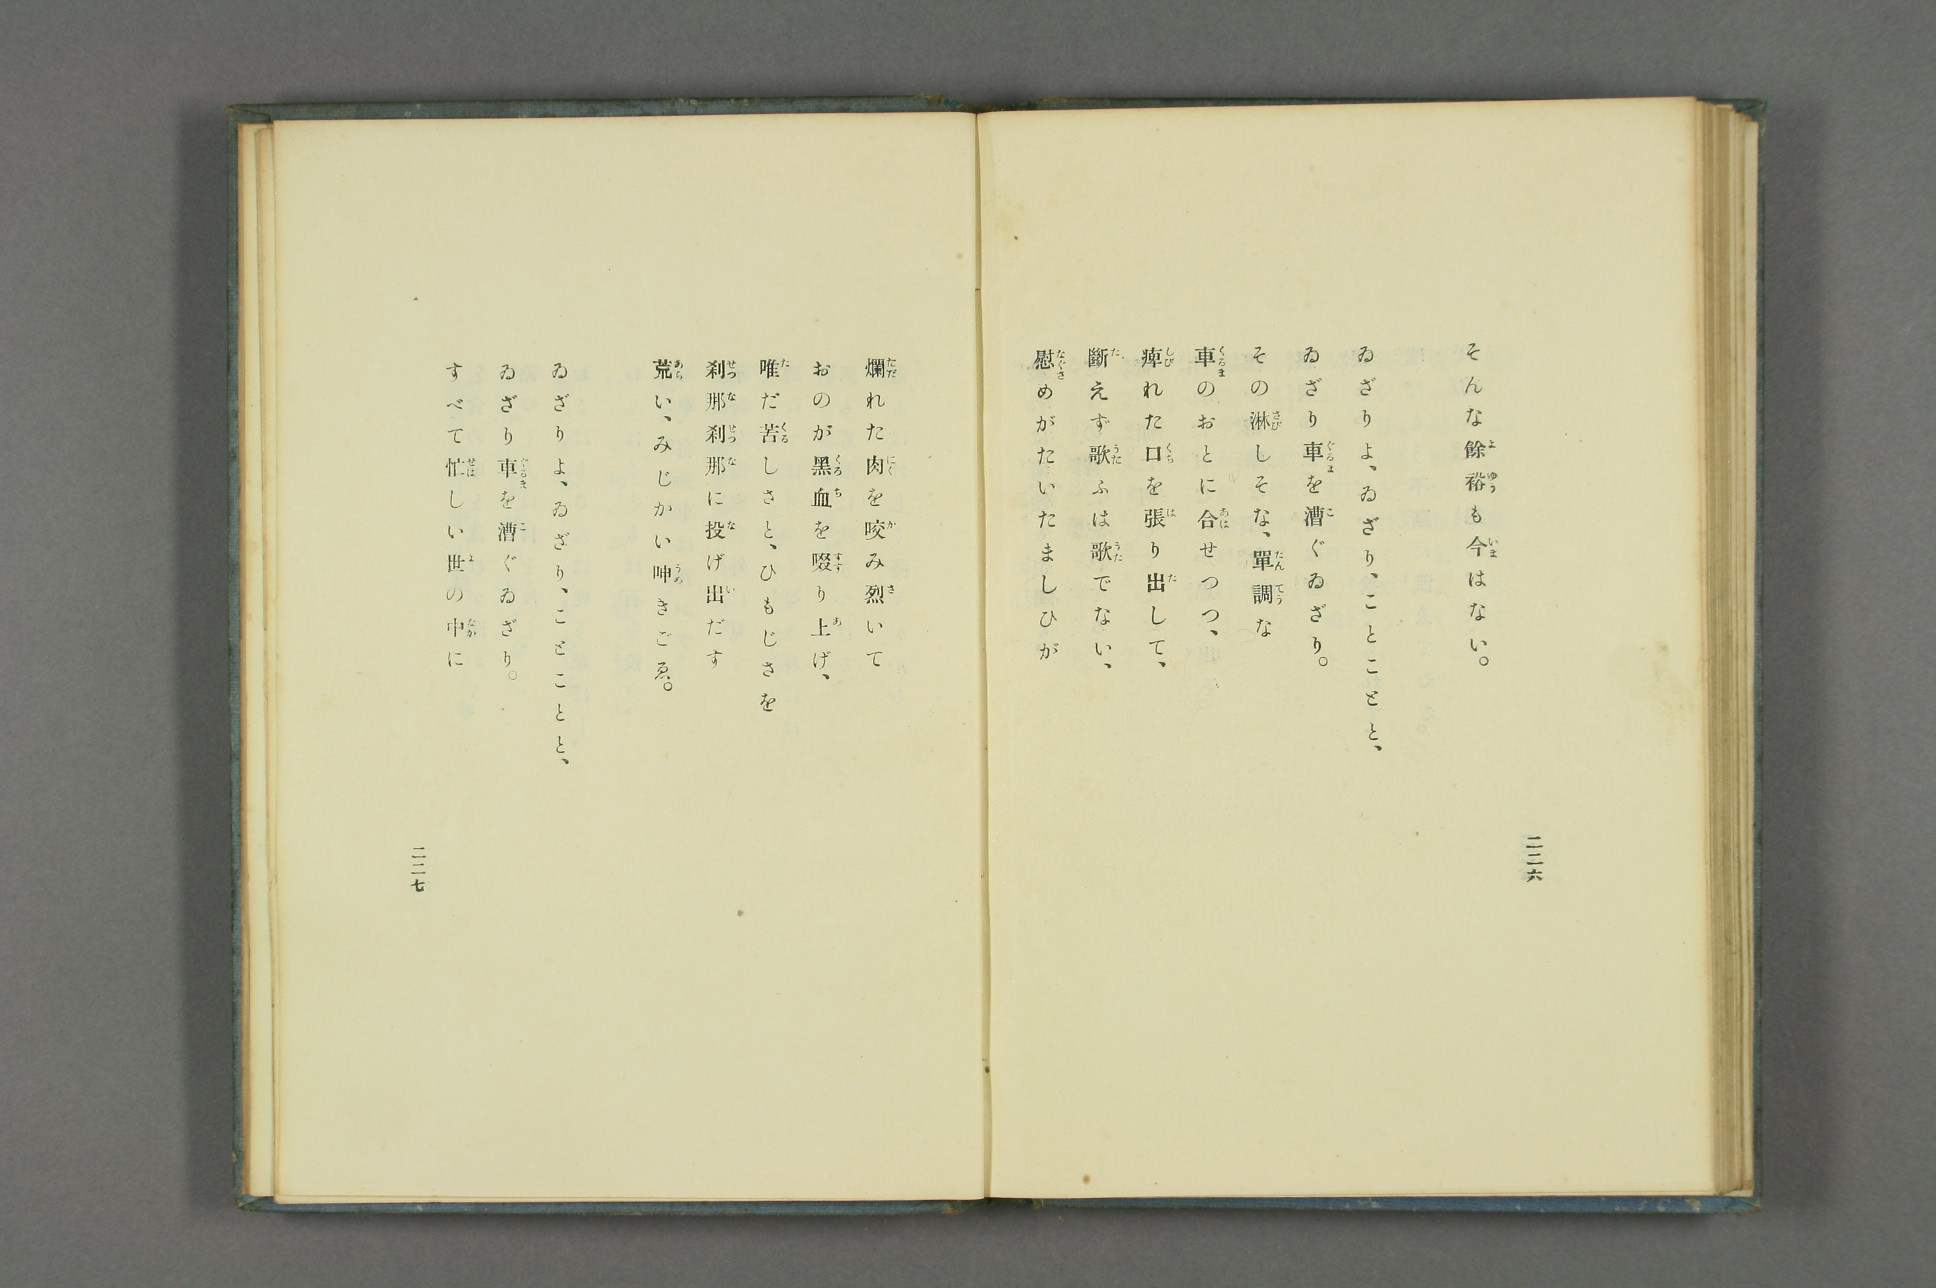 そんな餘裕も今はない。
ゐざりよ、ゐざり、ことことと、
ゐざり車を漕ぐゐざり。
その淋しそな、單調な
車のおとに合せつつ、
痺れた口を張り出して、
斷えず歌ふは歌でない、
慰めがたいたましひが
二二六
爛れた肉を咬み烈いて
おのが黑血を啜り上げ、
唯だ苦しさと、ひもじさを
刹那刹那に投げ出だす
荒い、みじかい呻きごゑ。
ゐざりよ、ゐざり、ことことと、
ゐざり車を漕ぐゐざり。
すべて忙しい世の中に
二二七